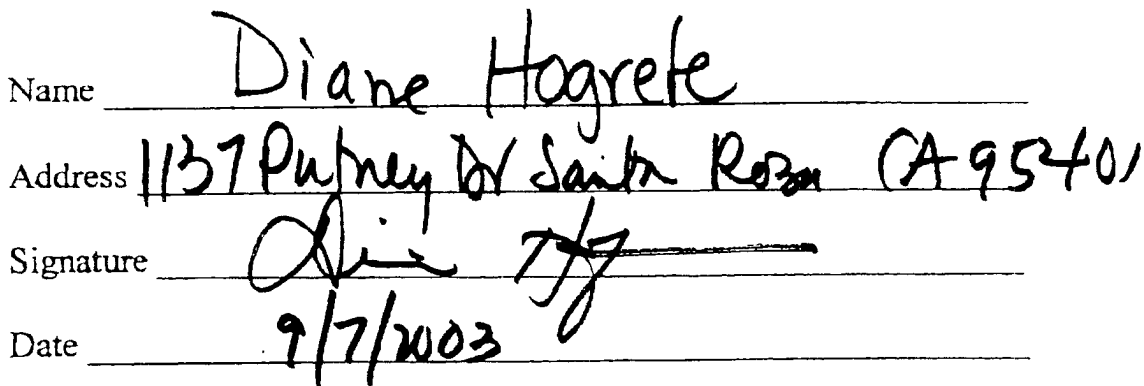 Name Diane Hogrefe
Address 1137 Putney Dr Santa Rosa CA 95401
Signature
Date 9/7/2003